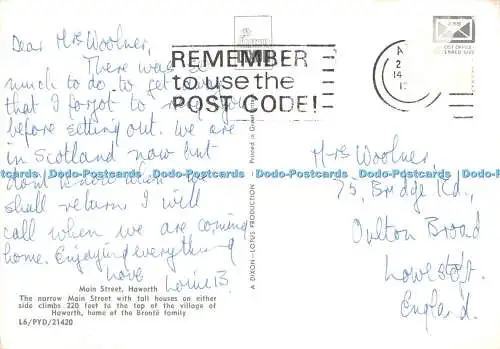 Dear Mrs Woolner,
There was so
much to do to get away
that I forgot to ring you
before setting out. We are
in Scotland now but
dont know when we
shall return I will
call when we are coming
home. Enjoying everything
Love
Lorie B.
Main Street, Haworth
The narrow Main Street with tall houses on either
side climbs 220 feet to the top of the village of
Haworth, home of the Brontë family
L6/PYD/21420
A DIXON-LOTUS PRODUCTION
Printed in Great
REMEMBER
to use the
POST CODE!
A
2
14
1
Mrs Woolner,
75, Bridge Rd.,
Oulton Broad
Lowestoft.
England.
Dodo-Postcards Dodo-Postcards Dodo-Postcards Dodo-Postcards Dodo-Postcards Dodo-Postcards